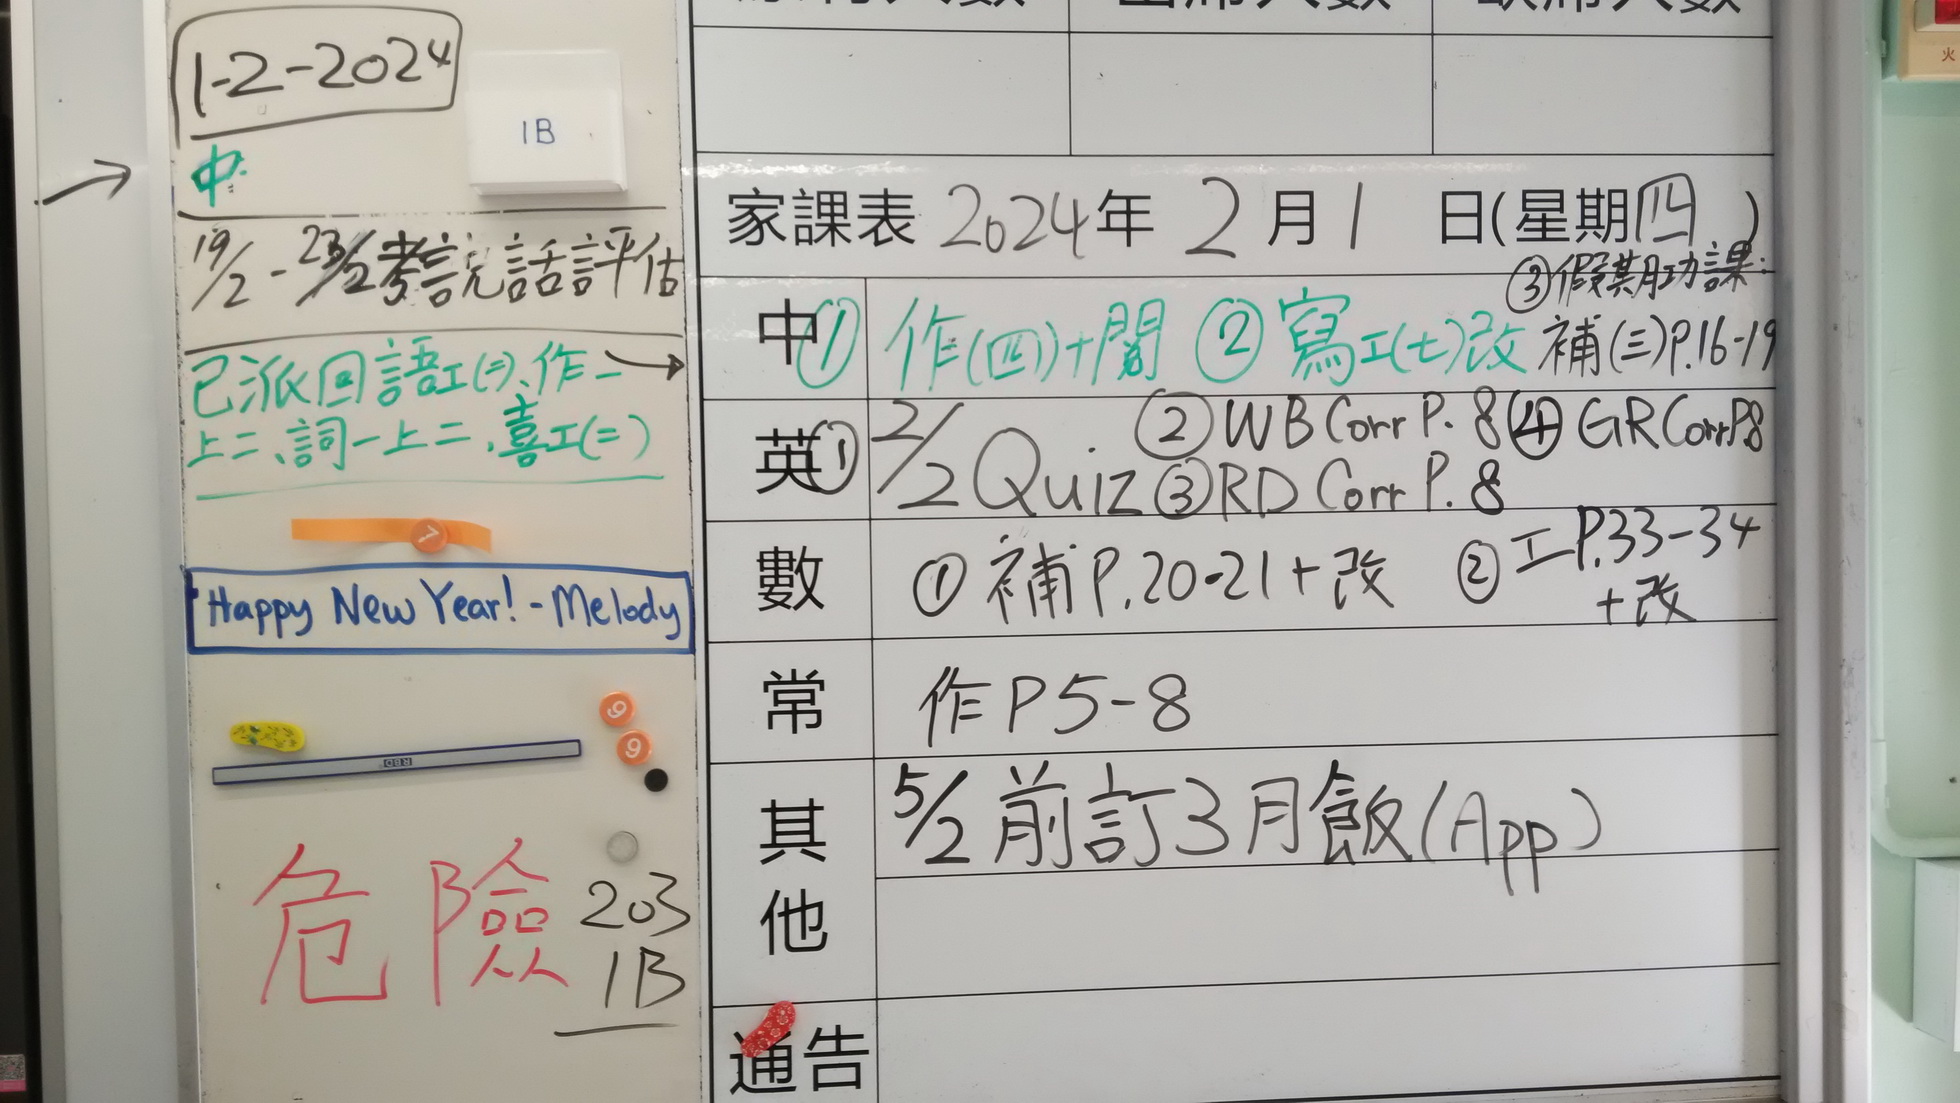 1-2-2024
1B
中:
19/2 - 23/2考說話評估
已派回語工(三)、作一
上二、詞一上二、喜工(二)
Happy New Year! - Melody
危險
203
1B
家課表 2024年 2月1 日(星期四)
中 ① 作(四)+閱 ② 寫工(七)改 ③假期功課:
補(三)P.16-19
英 ① 2/2 Quiz ② WB Corr P. 8 ④ GR Corr P8
③ RD Corr P. 8
數 ① 補P.20-21+改 ② 工P.33-34
+改
常 作P5-8
其他 5/2前訂3月飯(App)
通告
7
9
9
火